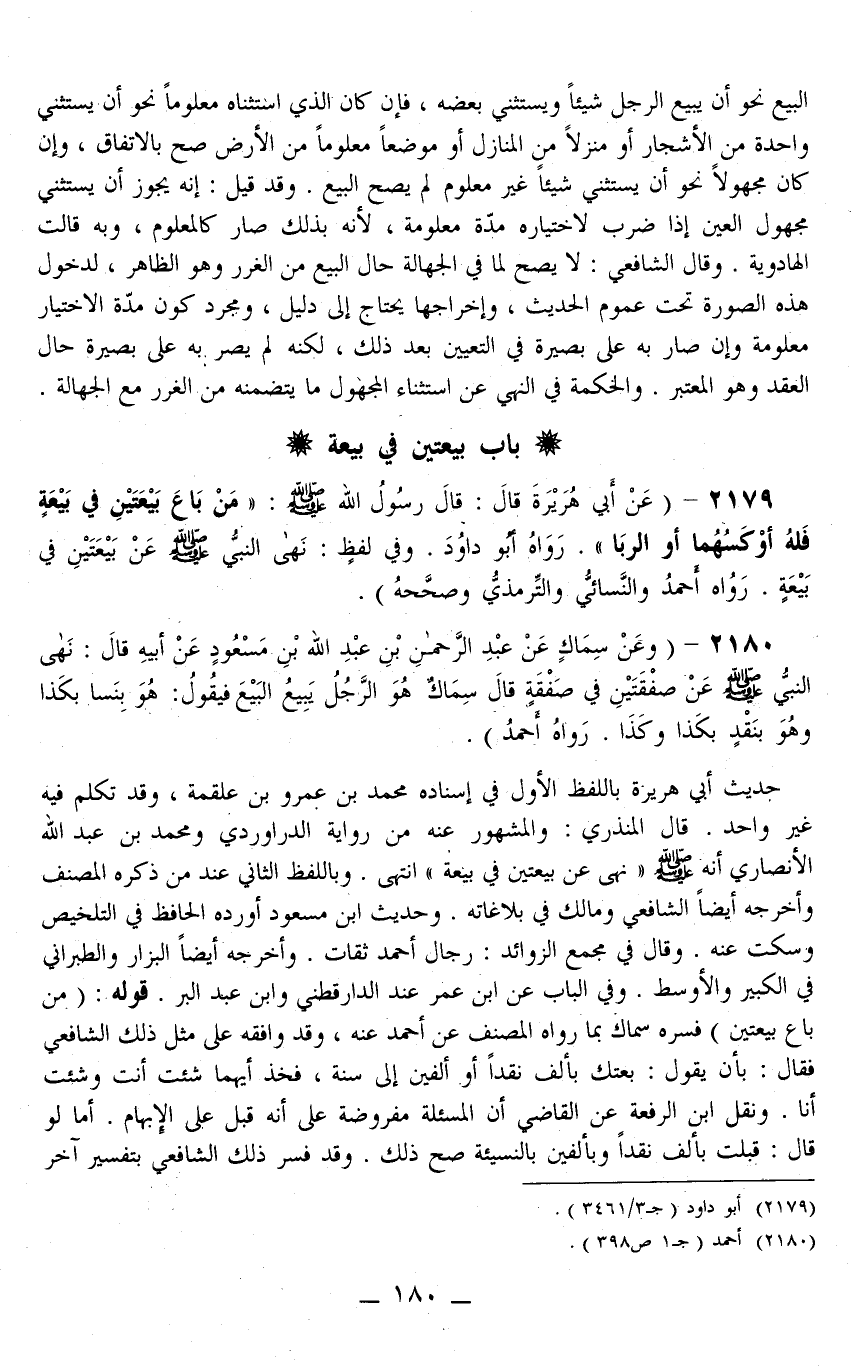 البيع نحو أن يبيع الرجل شيئاً ويستثني بعضه ، فإن كان الذي استثناه معلوماً نحو أن يستثني
واحدة من الأشجار أو منزلاً من المنازل أو موضعاً معلوماً من الأرض صح بالاتفاق ، وإن
كان مجهولاً نحو أن يستثني شيئاً غير معلوم لم يصح البيع . وقد قيل : إنه يجوز أن يستثني
مجهول العين إذا ضرب لاختياره مدّة معلومة ، لأنه بذلك صار كالمعلوم ، وبه قالت
الهادوية . وقال الشافعي : لا يصح لما في الجهالة حال البيع من الغرر وهو الظاهر ، لدخول
هذه الصورة تحت عموم الحديث ، وإخراجها يحتاج إلى دليل ، ومجرد كون مدّة الاختيار
معلومة وإن صار به على بصيرة في التعيين بعد ذلك ، لكنه لم يصر به على بصيرة حال
العقد وهو المعتبر . والحكمة في النهي عن استثناء المجهول ما يتضمنه من الغرر مع الجهالة .
باب بيعتين في بيعة
٢١٧٩ – ( عَنْ أَبي هُرَيْرَةَ قالَ : قالَ رسُولُ الله ﷺ : « مَنْ بَاعَ بَيْعَتَيْنِ في بَيْعَةٍ
فَلهُ أوْكَسُهُما أو الربَا » . رَوَاهُ أبُو داوُدَ . وفي لفظٍ : نَهىٰ النبيُّ ﷺ عَنْ بَيْعَتَيْنِ في
بَيْعَةٍ . رَوُاه أَحمدُ والنَّسائيُّ والتِّرمذيُّ وصحَّحهُ ) .
٢١٨٠ – ( وعَنْ سِمَاكٍ عَنْ عبْدِ الرَّحمـٰنِ بْنِ عبْدِ الله بْنِ مَسْعُودٍ عَنْ أبيهِ قالَ : نَهْى
النبيُّ ﷺ عَنْ صفْقَتَيْنِ في صَفْقَةٍ قالَ سِمَاكٌ هُوَ الرَّجُلُ يَبِيعُ البَيْعَ فيقُولُ: هُوَ بِنَسا بكَذا
وهُوَ بنَقْدٍ بكَذا وكَذَا . رَواهُ أَحمدُ ) .
حديث أبي هريرة باللفظ الأول في إسناده محمد بن عمرو بن علقمة ، وقد تكلم فيه
غير واحد . قال المنذري : والمشهور عنه من رواية الدراوردي ومحمد بن عبد الله
الأنصاري أنه ﷺ « نهى عن بيعتين في بيعة » انتهى . وباللفظ الثاني عند من ذكره المصنف
وأخرجه أيضاً الشافعي ومالك في بلاغاته . وحديث ابن مسعود أورده الحافظ في التلخيص
وسكت عنه . وقال في مجمع الزوائد : رجال أحمد ثقات . وأخرجه أيضاً البزار والطبراني
في الكبير والأوسط . وفي الباب عن ابن عمر عند الدارقطني وابن عبد البر . قوله : ( من
باع بيعتين ) فسره سماك بما رواه المصنف عن أحمد عنه ، وقد وافقه على مثل ذلك الشافعي
فقال : بأن يقول : بعتك بألف نقداً أو ألفين إلى سنة ، فخذ أيهما شئت أنت وشئت
أنا . ونقل ابن الرفعة عن القاضي أن المسئلة مفروضة على أنه قبل على الإبهام . أما لو
قال : قبلت بألف نقداً وبألفين بالنسيئة صح ذلك . وقد فسر ذلك الشافعي بتفسير آخر
(٢١٧٩) أبو داود ( جـ٣/٣٤٦١ ) .
(٢١٨٠) أحمد ( جـ١ ص٣٩٨ ) .
ــ ١٨٠ ــ